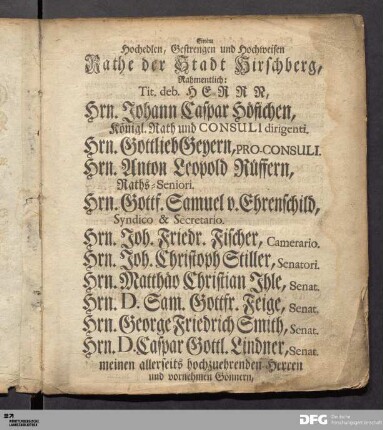 Einem
Hochedlen, Gestrengen und Hochweisen
Rathe der Stadt Hirschberg,
Nahmentlich:
Tit. deb. HERRN,
Hrn. Johann Caspar Höffchen,
Königl. Rath und CONSULI dirigenti.
Hrn. Gottlieb Geyern, PRO-CONSULI.
Hrn. Anton Leopold Rüffern,
Raths-Seniori.
Hrn. Gottf. Samuel v. Ehrenschild,
Syndico & Secretario.
Hrn. Joh. Friedr. Fischer, Camerario.
Hrn. Joh. Christoph Stiller, Senatori.
Hrn. Matthäo Christian Ihle, Senat.
Hrn. D. Sam. Gottfr. Feige, Senat.
Hrn. George Friedrich Smith, Senat.
Hrn. D. Caspar Gottl. Lindner, Senat.
meinen allerseits hochzuehrenden Herren
und vornehmen Gönnern,
DFG Deutsche
Forschungsgemeinschaft